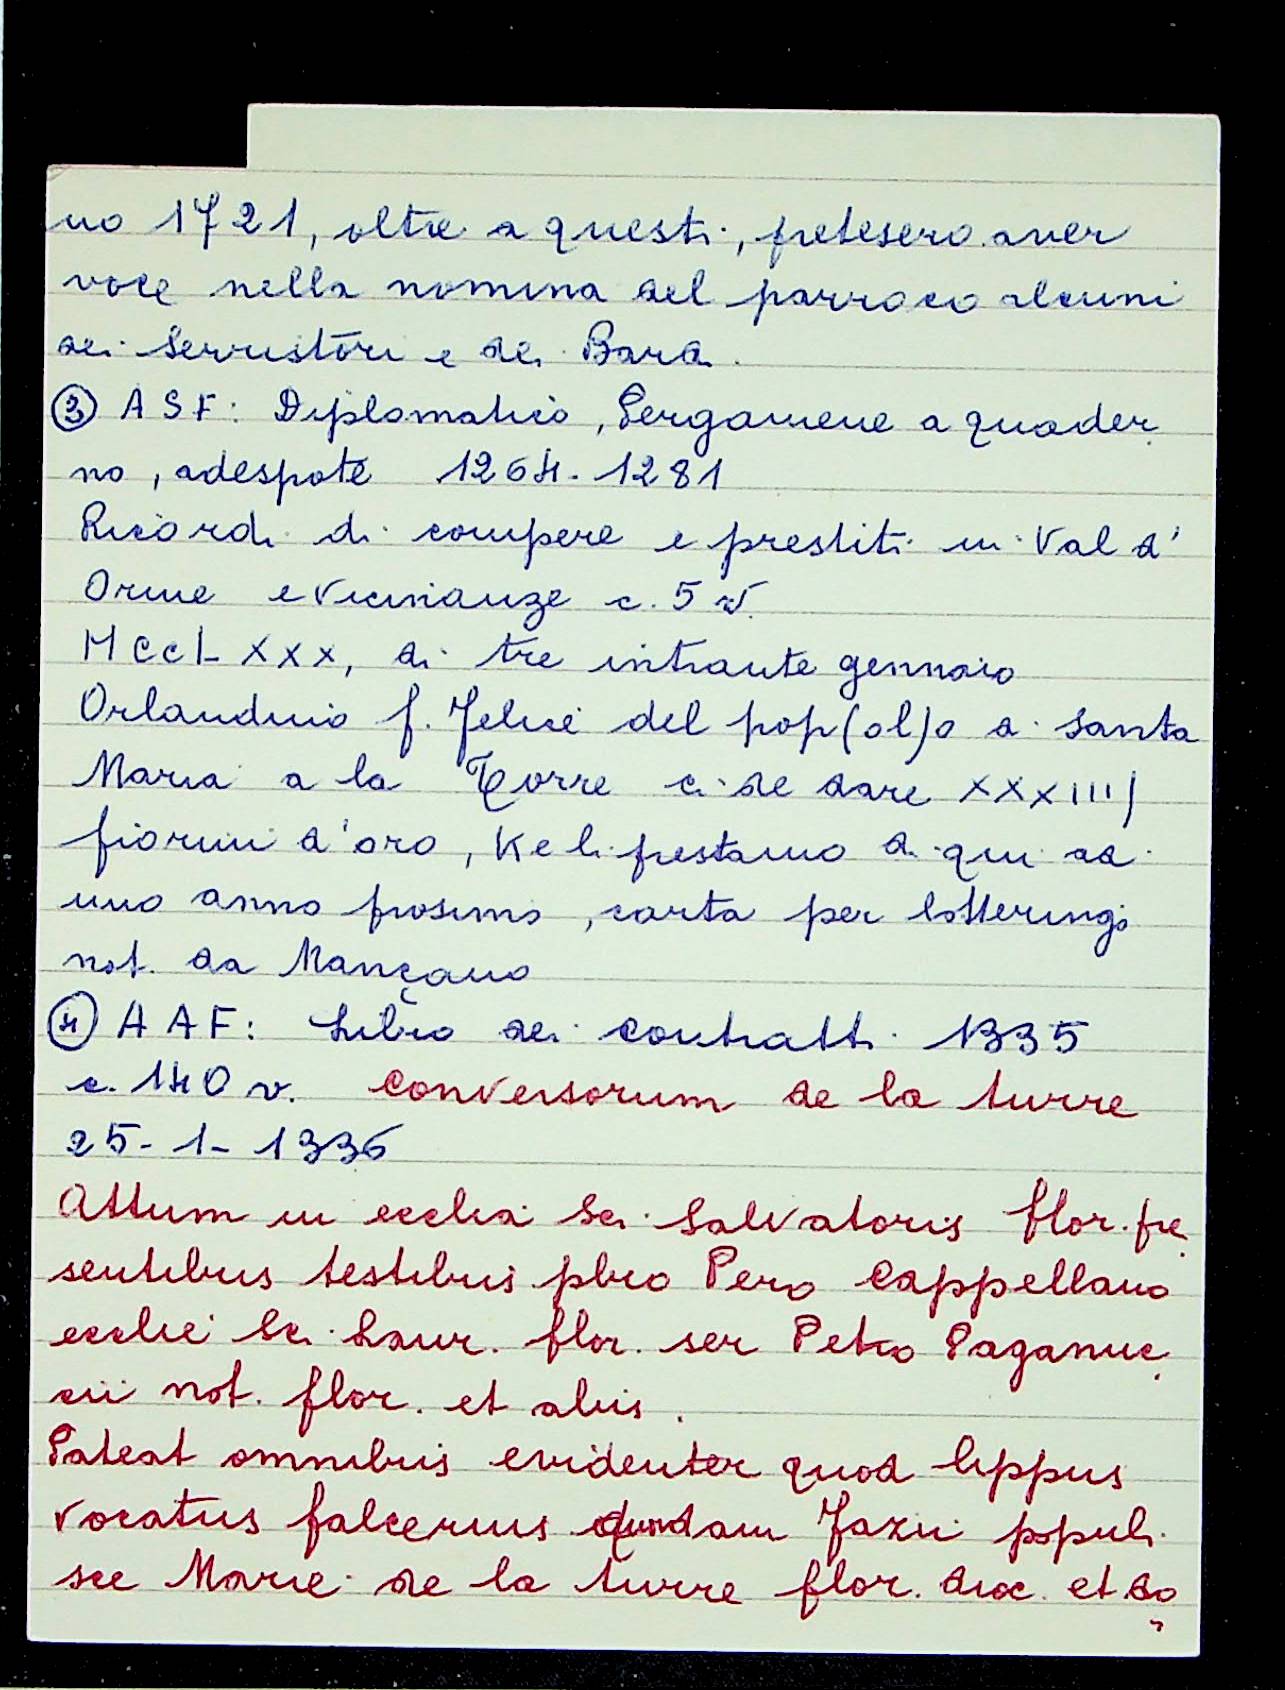 no 1721, oltre a questi, pretesero aver
voce nella nomina del parroco alcuni
dei Serristori e dei Bardi.
③ ASF: Diplomatico, Pergamene a quader
no, adespote 1264-1281
Ricordi di compere e prestiti in Val d'
Orme e vicinanze c. 5 v.
MCCLXXX, di tre intrante gennaio
Orlanduio f. Felice del pop(ol)o di Santa
Maria a la Torre ci de dare XXXIIIJ
fiorini d'oro, ke li prestamo di qui ad
uno anno prosimo, carta per Lotteringo
not. da Mançano
④ AAF: Libro dei contratti 1335
c. 140 v. Conversorum de la turre
25-1-1336
Attum in ecclia Sci Salvatoris flor. pre
sentibus testibus pbro Pero Cappellano
ecclie Sci Laur. flor. ser Petro Paganuc
cii not. flor. et aliis.
Pateat omnibus evidenter quod Lippus
vocatus falcerius quondam Fazii populi
sce Marie de la turre flor. dioc. et do